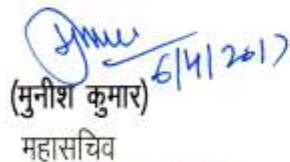 6/4/2017
(मुनीश कुमार)
महासचिव